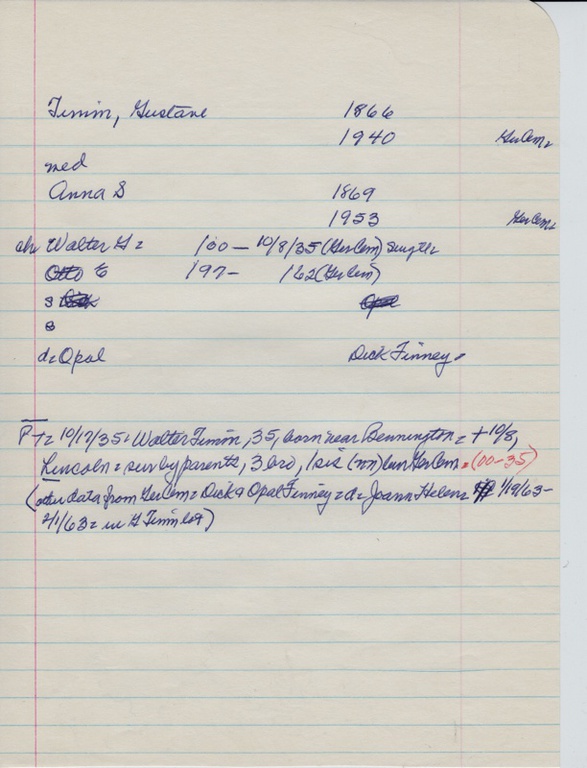 Timm, Gustave 1866
1940 GerCem=
med
Anna S 1869
1953 GerCem=
ch Walter G= 100— 10/8/35 (GerCem) single=
Otto 6 197- 162 (GerCem)
s
8
d= Opal Dick Finney=
PT= 10/17/35= Walter Timm, 35, born near Bennington= + 10/8,
Lincoln= sur by parents, 3 bro, 1 sis (nn) bur GerCem= (00-35)
(other data from GerCem= Dick & Opal Finney= d= Joann Helen= 1/19/63-
2/1/63= in G Timm lot)